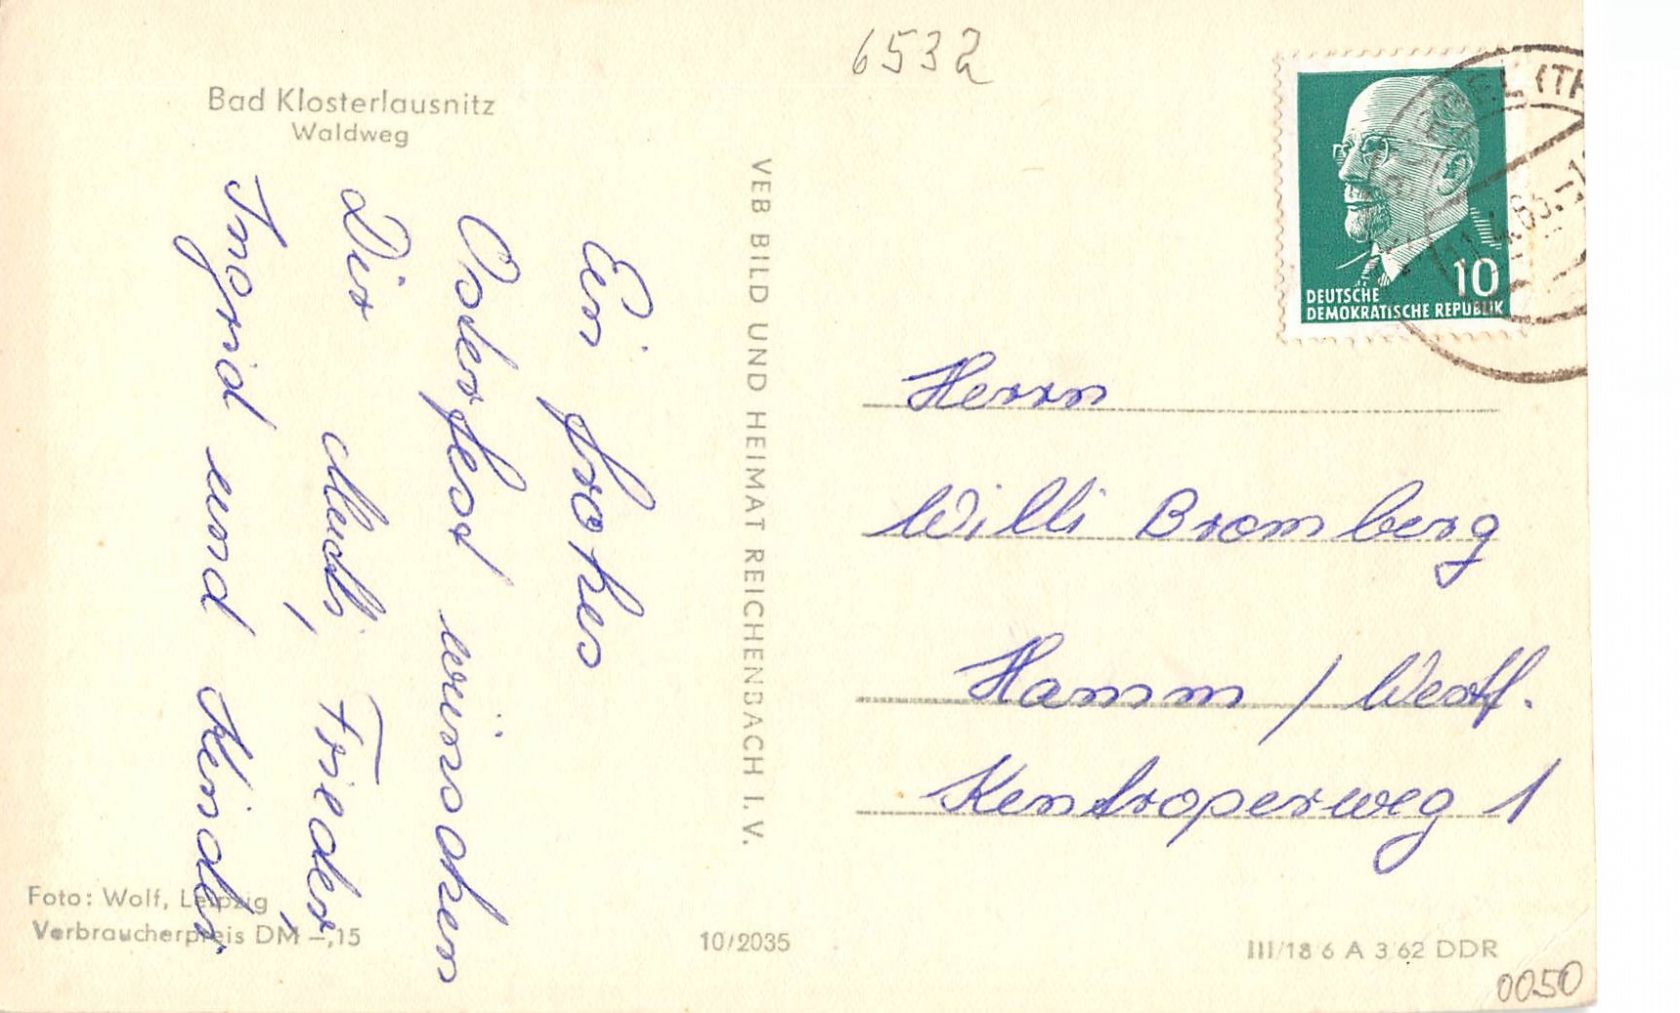 6532
Bad Klosterlausnitz
Waldweg
Ein frohes
Osterfest wünschen
Dir Mudi, Frieder,
Ingrid und Kinder.
VEB BILD UND HEIMAT REICHENBACH I. V.
10
DEUTSCHE
DEMOKRATISCHE REPUBLIK
Herrn
Willi Bromberg
Hamm / Westf.
Kentroperweg 1
Foto: Wolf, Leipzig
Verbraucherpreis DM –,15
10/2035
III/18 6 A 3 62 DDR
0050